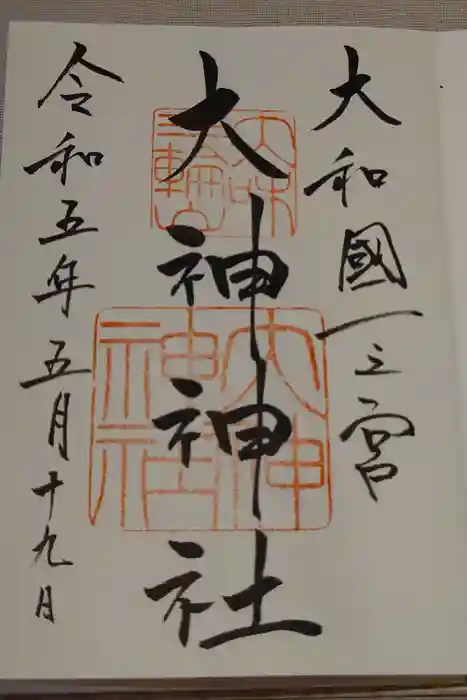 大和國一之宮
大神神社
令和五年五月十九日
大和
三輪山
大神
神社